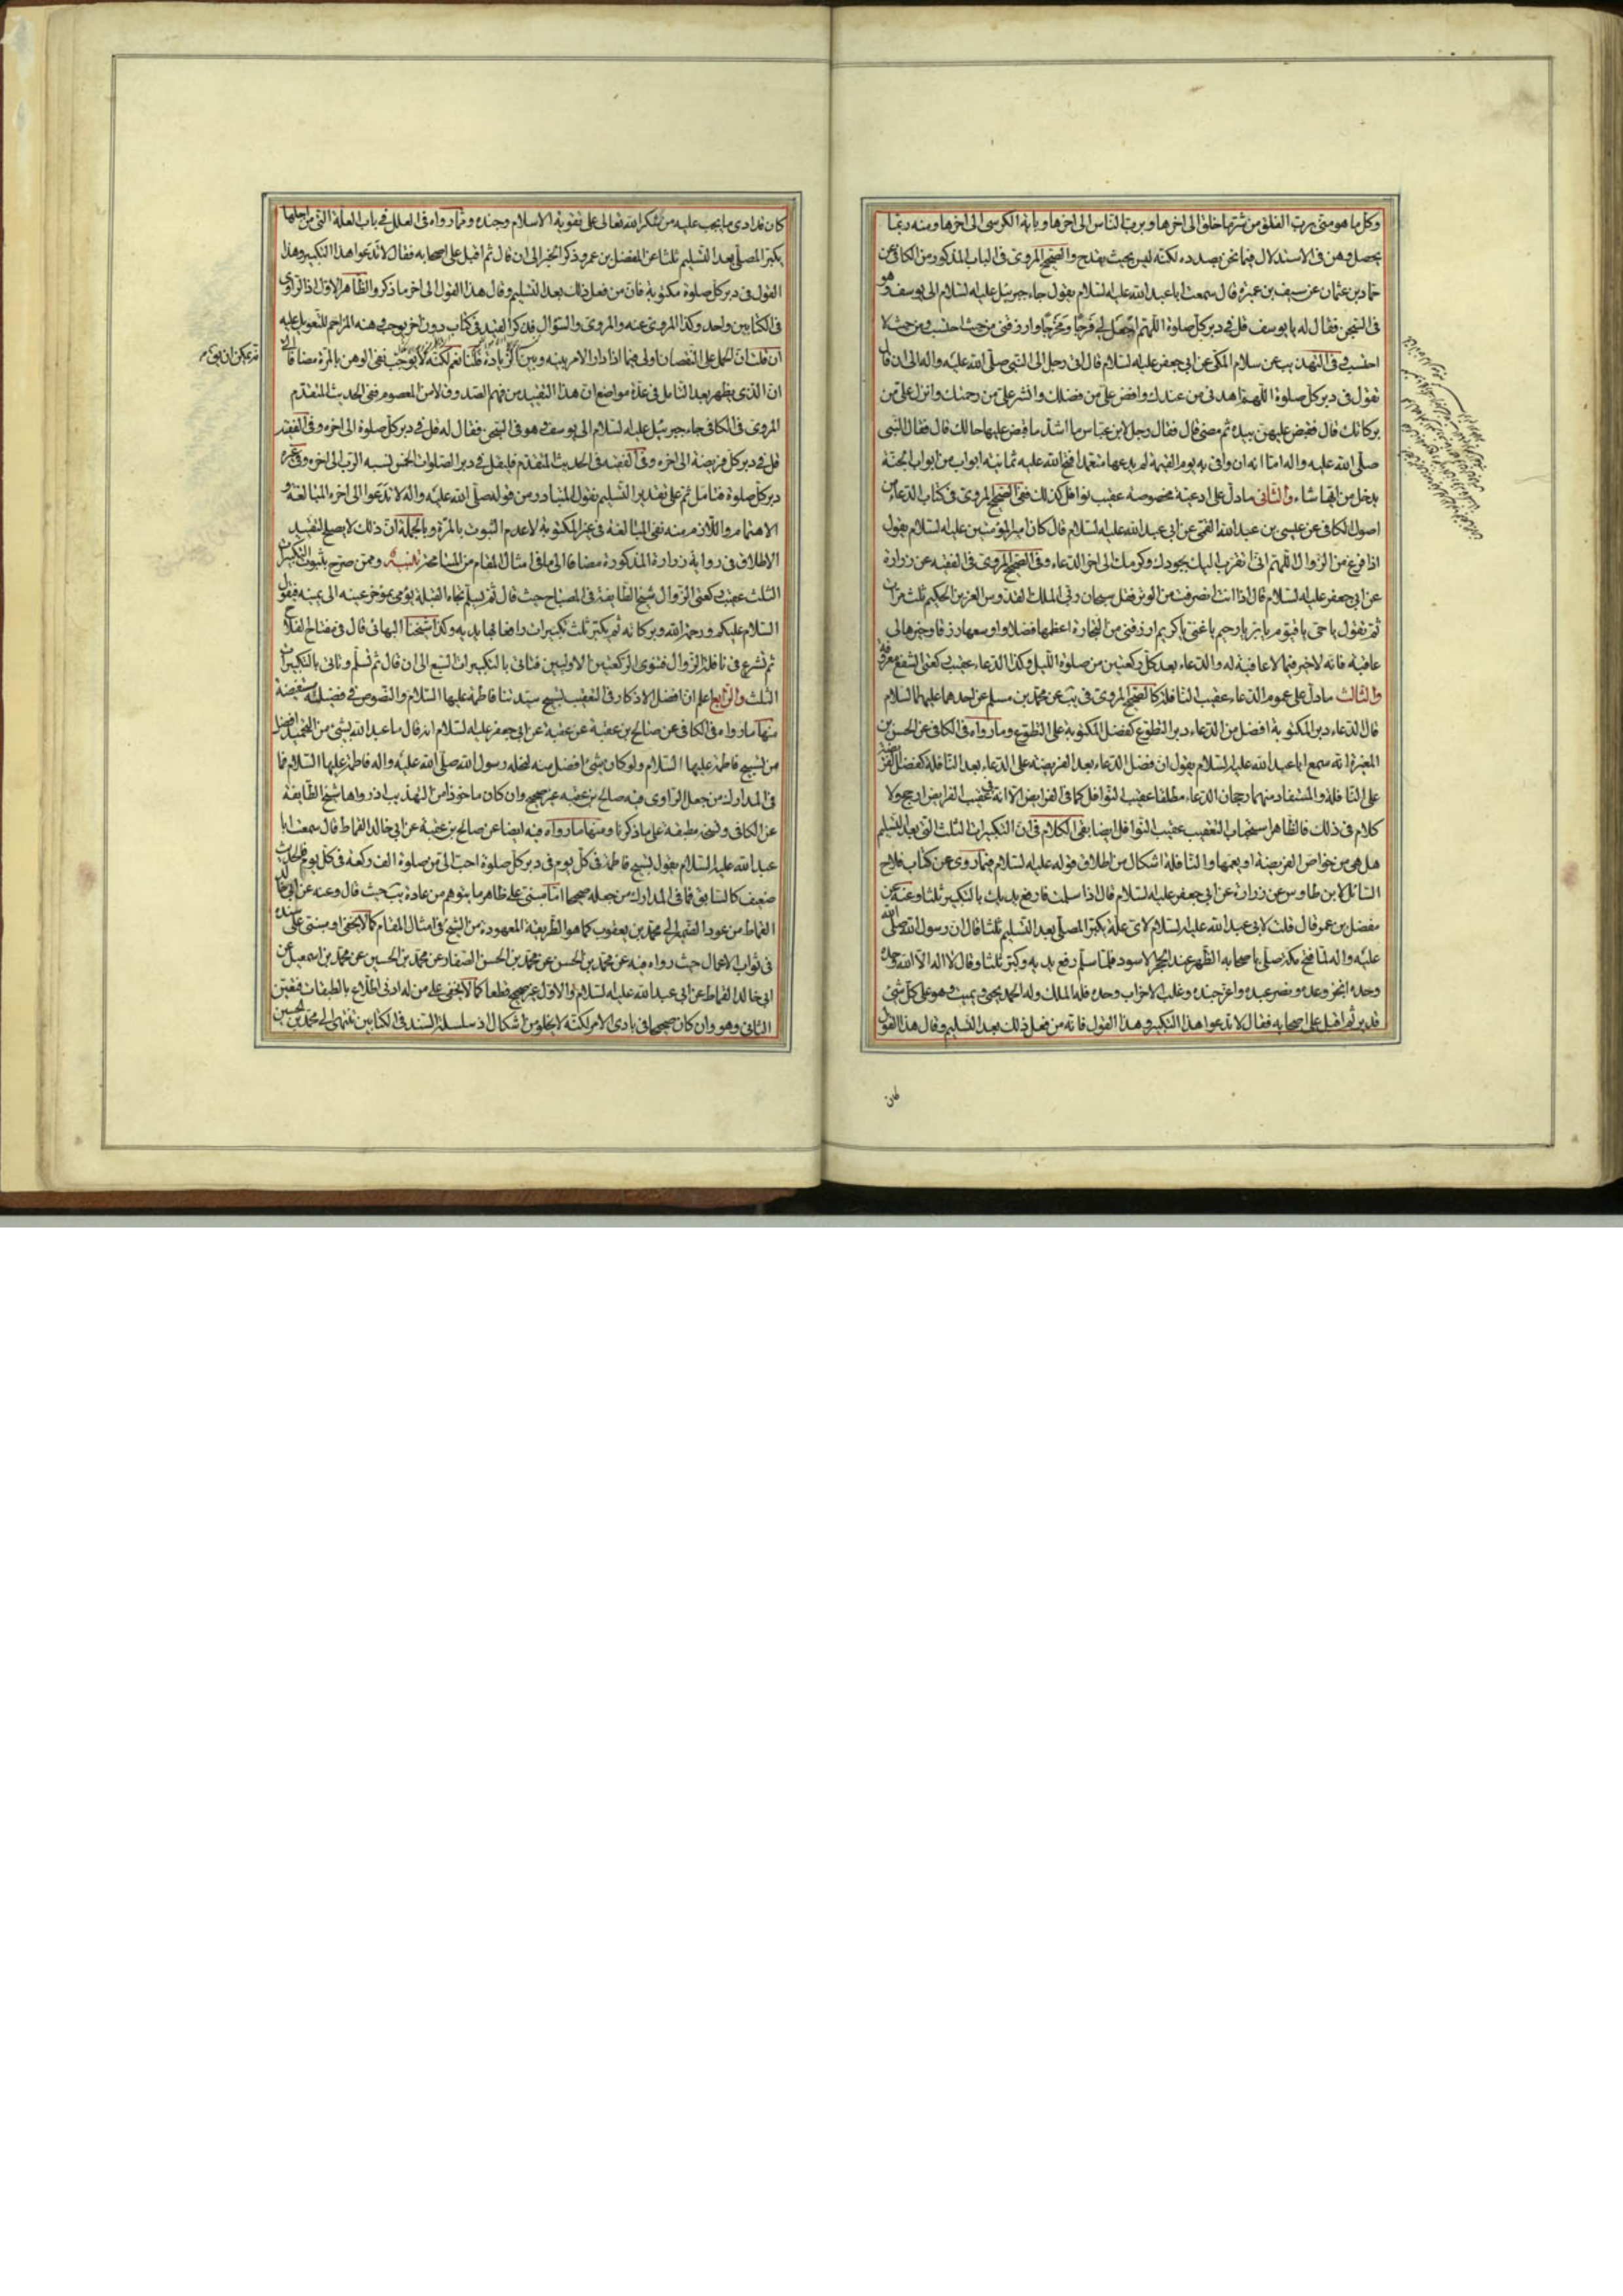 وكل ما هو متى برب الفلق من شر ما خلق الى اخرها وبرب الناس الى اخرها وباية الكرسى الى اخرها ومنه ربما
يحصل وهن فى الاستدلال فيما نحن بصدده لكنه ليس بحيث يقدح والصحيح المروى فى الباب المذكور من الكافى عن
حماد بن عثمان عن سيف بن عميرة قال سمعت ابا عبد الله عليه السلام يقول جاء جبرئيل عليه السلام الى يوسف وهو
فى السجن فقال له يا يوسف قل فى دبر كل صلوة اللهم اجعل لى فرجا ومخرجا وارزقنى من حيث احتسب ومن حيث لا
احتسب وفى التهذيب عن سلام المكى عن ابى جعفر عليه السلام قال اتى رجل الى النبى صلى الله عليه واله الى ان قال
تقول فى دبر كل صلوة اللهم اهدنى من عندك وافض على من فضلك وانشر على من رحمتك وانزل على من
بركاتك قال فقبض عليهن بيده ثم مضى قال فقال رجل لابن عباس ما اشد ما قبض عليها خالك قال فقال النبى
صلى الله عليه واله اما انه ان وافى به يوم القيمة لم يدعها متعمدا فتح الله عليه ثمانية ابواب من ابواب الجنة
يدخل من ايها شاء والثانى ما دل على ادعية مخصوصة عقيب نوافل كذلك ففى الصحيح المروى فى كتاب الدعاء من
اصول الكافى عن عيسى بن عبد الله القمى عن ابى عبد الله عليه السلام قال كان امير المؤمنين عليه السلام يقول
اذا فرغ من الزوال اللهم انى اتقرب اليك بجودك وكرمك الى اخر الدعاء وفى الصحيح المروى فى الفقيه عن زرارة
عن ابى جعفر عليه السلام قال اذا انت انصرفت من الوتر فقل سبحان ربى الملك القدوس العزيز الحكيم ثلث مرات
ثم تقول يا حى يا قيوم يا بر يا رحيم يا غنى يا كريم ارزقنى من التجارة اعظمها فضلا واوسعها رزقا وخيرها لى
عاقبة فانه لا خير فيما لا عاقبة له والدعاء بعد كل ركعتين من صلوة الليل وكذا الدعاء عقيب ركعتى الشفع معروف
والثالث ما دل على عموم الدعاء عقيب النافلة كالصحيح المروى فى يب عن محمد بن مسلم عن احدهما عليهما السلام
قال الدعاء دبر المكتوبة افضل من الدعاء دبر التطوع كفضل المكتوبة على التطوع وما رواه فى الكافى عن الحسن بن
المغيرة انه سمع ابا عبد الله عليه السلام يقول ان فضل الدعاء بعد الفريضة على الدعاء بعد النافلة كفضل الفريضة
على النافلة والمستفاد منهما رجحان الدعاء مطلقا عقيب النوافل كما فى الفرايض الا انه فى تعقيب الفرايض ارجح ولا
كلام فى ذلك فالظاهر استحباب التعقيب عقيب النوافل ايضا بقى الكلام فى ان التكبيرات الثلث التى بعد التسليم
هل هى من خواص الفريضة او يعمها والنافلة اشكال من اطلاق قوله عليه السلام فيما روى عن كتاب فلاح
السائل لابن طاوس عن زرارة عن ابى جعفر عليه السلام قال اذا سلمت فارفع يديك بالتكبير ثلثا وعنه عن
مفضل بن عمر قال قلت لابى عبد الله عليه السلام لاى علة يكبر المصلى بعد التسليم ثلثا قال ان رسول الله صلى الله
عليه واله لما فتح مكة صلى باصحابه الظهر عند الحجر الاسود فلما سلم رفع يديه وكبر ثلثا وقال لا اله الا الله وحده
وحده انجز وعده ونصر عبده واعز جنده وغلب الاحزاب وحده فله الملك وله الحمد يحيى ويميت وهو على كل شئ
قدير ثم اقبل على اصحابه فقال لا تدعوا هذا التكبير وهذا القول فانه من فعل ذلك بعد التسليم وقال هذا القول
كان
كان قد ادى ما يجب عليه من شكر الله تعالى على تقوية الاسلام وجنده ومما رواه فى العلل فى باب العلة التى من اجلها
يكبر المصلى بعد التسليم ثلثا عن المفضل بن عمر وذكر الخبر الى ان قال ثم اقبل على اصحابه فقال لا تدعوا هذا التكبير وهذا
القول فى دبر كل صلوة مكتوبة فان من فعل ذلك بعد التسليم وقال هذا القول الى اخر ما ذكر والظاهر الاول اذ الراوى
فى الكتابين واحد وكذا المروى عنه والمروى والسؤال فذكر القيد فى كتاب دون اخر يوجب المزاحم للتعويل عليه
ان قلت ان الحمل على النقصان اولى فيما اذا دار الامر بينه وبين الزيادة قلنا نعم لكنه لا يوجب نفى الوهن بالمرة مضافا الى
ان الذى يظهر بعد التامل فى عدة مواضع ان هذا التقييد من فهم الصدوق لا من المعصوم ففى الحديث المتقدم
المروى فى الكافى جاء جبرئيل عليه السلام الى يوسف وهو فى السجن فقال له قل فى دبر كل صلوة الى اخره وفى الفقيه
قل فى دبر كل فريضة الى اخره وفى الفقيه فى الحديث المتقدم فليقل فى دبر الصلوات الخمس نسبه الرب الى اخره وفى غيره
دبر كل صلوة فتامل ثم على تقدير التسليم نقول المتبادر من قوله صلى الله عليه واله لا تدعوا الى اخره المبالغة و
الاهتمام واللازم منه نفى المبالغة فى غير المكتوبة لا عدم الثبوت بالمرة وبالجملة ان ذلك لا يصلح لتقييد
الاطلاق فى رواية زرارة المذكورة مضافا الى ما فى امثال المقام من المسامحة تنبيه وممن صرح بثبوت التكبيرات
الثلث عقيب ركعتى الزوال شيخ الطايفة فى المصباح حيث قال ثم تسلم تجاه القبلة يؤمى بمؤخر عينه الى يمينه فيقول
السلام عليكم ورحمة الله وبركاته ثم يكبر ثلث تكبيرات رافعا بها يديه وكذا شيخنا البهائى قال فى مفتاح الفلاح
ثم تشرع فى نافلة الزوال فتنوى الركعتين الاوليين فتاتى بالتكبيرات السبع الى ان قال ثم تسلم وتاتى بالتكبيرات
الثلث والرابع اعلم ان افضل الاذكار فى التعقيب تسبيح سيدتنا فاطمة عليها السلام والنصوص فى فضيلته مستفيضة
منها ما رواه فى الكافى عن صالح بن عقبة عن عقبة عن ابى جعفر عليه السلام انه قال ما عبد الله بشئ من التحميد افضل
من تسبيح فاطمة عليها السلام ولو كان شئ افضل منه لنحله رسول الله صلى الله عليه واله فاطمة عليها السلام فما
فى المدارك من جعل الراوى فيه صالح بن عقبه غير صحيح وان كان ماخوذا من التهذيب اذ رواها شيخ الطايفة
عن الكافى ونسخه مطبقة على ما ذكرنا ومنها ما رواه فيه ايضا عن صالح بن عقبة عن ابى خالد القماط قال سمعت ابا
عبد الله عليه السلام يقول تسبيح فاطمة فى كل يوم فى دبر كل صلوة احب الى من صلوة الف ركعة فى كل يوم فالحديث
ضعيف كالسابق فما فى المدارك من جعله صحيحا اما مبنى على ظاهر ما يتوهم من عادة يب حيث قال وعنه عن ابى خالد
القماط من عود الضمير الى محمد بن يعقوب كما هو الطريقة المعهودة من الشيخ فى امثال المقام كما لا يخفى او مبنى على سنده
فى ثواب الاعمال حيث رواه فيه عن محمد بن الحسن عن محمد بن الحسن الصفار عن محمد بن الحسين عن محمد بن اسمعيل عن
ابى خالد القماط عن ابى عبد الله عليه السلام والاول غير صحيح قطعا كما لا يخفى على من له ادنى اطلاع بالطبقات فتعين
الثانى وهو وان كان صحيحا فى بادى الامر لكنه لا يخلو من اشكال اذ سلسلة السند فى الكتابين تنتهى الى محمد بن الحسين